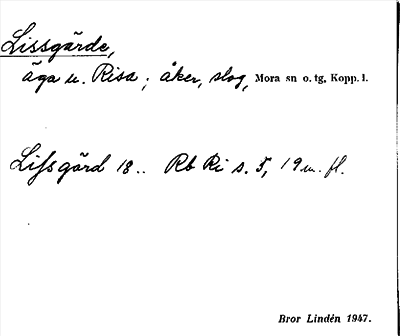 Lissgärde,
äga u. Risa; åker, slog, Mora sn o. tg, Kopp. l.
Lifsgård 18.. Rb Ri s. 5, 19 m. fl.
Bror Lindén 1947.